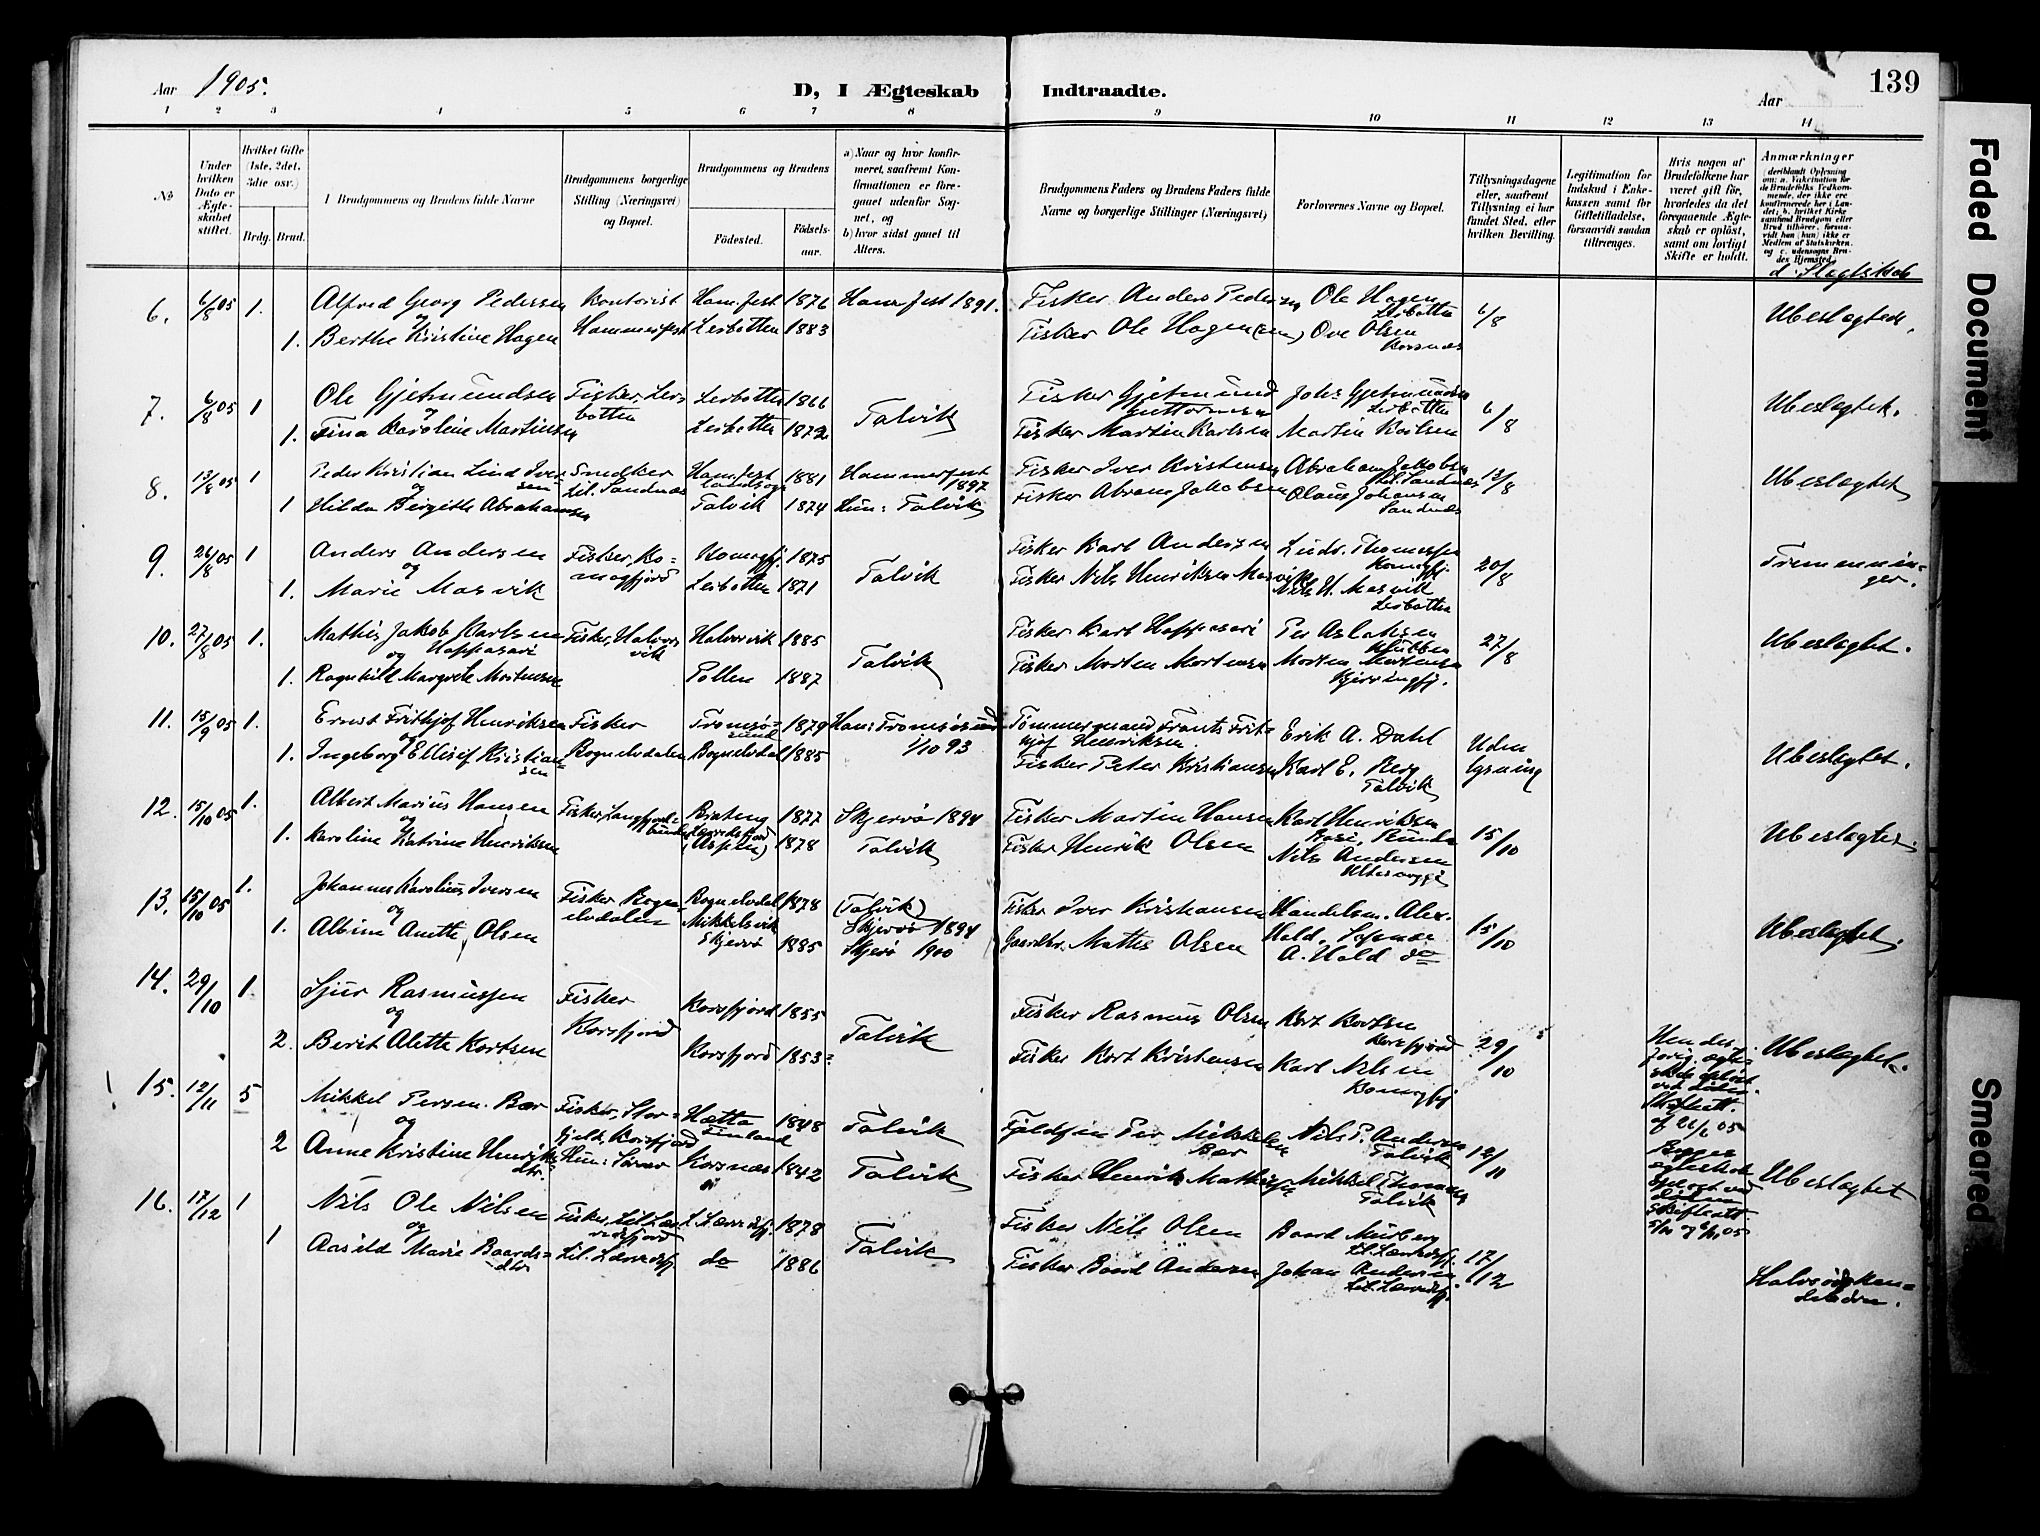 Aar 1905.
D, I Ægteskab Indtraadte.
Aar
139
1 2 3 4 5 6 7 8 9 10 11 12 13 14
No
Under hvilken Dato er Ægteskabet stiftet.
Hvilket Gifte (1ste, 2det, 3die osv.)
Brdg. Brud.
I Brudgommens og Brudens fulde Navne
Brudgommens borgerlige Stilling (Næringsvei) og Bopæl.
Brudgommens og Brudens
Fødested.
Fødselsaar.
a) Naar og hvor konfirmeret, saafremt Konfirmationen er foregaaet udenfor Sognet, og
b) hvor sidst gaaet til Alters.
Brudgommens Faders og Brudens Faders fulde Navne og borgerlige Stillinger (Næringsvei)
Forlovernes Navne og Bopæl.
Tillysningsdagene eller, saafremt Tillysning ei har fundet Sted, efter hvilken Bevilling.
Legitimation for Indskud i Enkekassen samt for Giftetilladelse, forsaavidt saadan tiltrænges.
Hvis nogen af Brudefolkene har været gift før, hvorledes da det foregaaende Ægteskab er opløst, samt om lovligt Skifte er holdt.
Anmærkninger
d. Slægtskab
6. 6/8 05 1. Alfred Georg Pedersen Kontorist Ham.fest 1876 Hamrfest 1891. Fisker Anders Pedersen Ole Hagen Lerbotten 6/8 Ubeslægtede.
og
1. Berthe Kristine Hagen Hammerfest Lerbotten 1883 Fisker Ole Hagen Ove Olsen Korsnæs
7. 6/8 05 1 Ole Gjetmundsen Fisker, Lerbotten Lerbotten 1866 Talvik Fisker Gjetmund Guttormsen Johs Gjetmundsen Lerbotten 6/8 Ubeslægtet.
og
1. Fina Karoline Martinsen Lerbotten 1872 Fisker Martin Karlsen Martin Karlsen
8. 13/8 05 1 Peder Kristian Lind Iversen Snedker Lil. Sandnæs Ham.fest landsogn 1881 Hammerfest 1897 Fisker Iver Kristensen Abraham Jakobsen Lil. Sandnæs 13/8 Ubeslægtet
og
1 Hilda Birgitte Abrahamsen Talvik 1874 Hun: Talvik Fisker Abram Jakobsen Olaus Johansen Sandnæs
9. 26/8 05 1 Anders Andersen Fisker, Komagfjord Komagfj. 1875 Talvik Fisker Karl Andersen Ludv. Thomassen Komagfj. 20/8 Tremenninger.
og
1. Marie Masvik Lerbotten 1871 Fisker Nils Henriksen Masvik Nils H. Masvik Lerbotten
10. 27/8 05 1. Mathis Jakob Karlsen Happasari Fisker, Halvorsvik Halvorsvik 1885 Talvik Fisker Karl Happasari Per Aslaksen Klubben 27/8 Ubeslægtet.
og
1. Ragnhild Margrete Mortensen Pollen 1887 Fisker Morten Mortensen Morten Mortensen Kjerringfj.
11. 15/9 05 1. Ernst Frithjof Henriksen Fisker Tromsøsund 1879 Han: Tromsøsund 1/10 93 Tømmermand Frants Frithjof Henriksen. Erik A. Dahl Uden lysning Ubeslægtet.
og
1. Ingeborg Ellisif Kristiansen Bognelvdalen Bognelvdal 1885 Fisker Peter Kristiansen Karl E. Berg Talvik
12. 15/10 05 1. Albert Marius Hansen Fisker, Langfjordbunden 1877 Skjervø 1894 Fisker Martin Hansen Karl Henriksen 15/10 Ubeslægtet.
og
1. Karoline Katrine Henriksen (Aspen) 1878 Talvik Fisker Henrik Olsen Nils Andersen
13. 15/10 05 1. Johannes Karolius Iversen Fisker Bognelvdalen Bognelvdal 1878 (Talvik) Skjervø 1894 Fisker Iver Kristiansen Handelsm. Alex. Hald, 15/10 Ubeslægtet.
og
1. Albine Anette Olsen Mikkelsvik Skjervø 1885 Skjervø 1900 Gaardbr. Mathis Olsen A. Hald do
14. 29/10 1. Sjur Rasmussen Fisker Korsfjord Korsfjord 1855 Talvik Fisker Rasmus Olsen Kort Kortsen Korsfjord 29/10 Ubeslægtet.
og
2. Berit Alette Kortsen Korsfjord 1853 Fisker Kort Kristensen Karl Nilsen Komagfj
15. 12/11 5 Mikkel Persen Bær Fisker, Korsfjord Hætta Finland 1848 Talvik Fjeldfin Per Mikkelsen Bær Nils P. Andersen Talvik 12/11 Ubeslægtet
og
2 Anne Kristine Henriksdtr. Hun: Korsnæs 1842 Talvik Fisker Henrik Mathisen Mikkel Thomassen Talvik
16. 17/12 1 Nils Ole Nilsen Fisker, Lil. Lærredsfjord L. Lærredsfj. 1878 Talvik Fisker Nils Olsen Baard Murberg Lil. Lærredsfj. 17/12 Halvsøskendebørn.
og
1 Aasild Marie Baardsdtr Lil. Lærredsfj do 1886 Fisker Baard Andersen Johan Andersen Lil. Lærredsfj.
Faded Document
Smeared